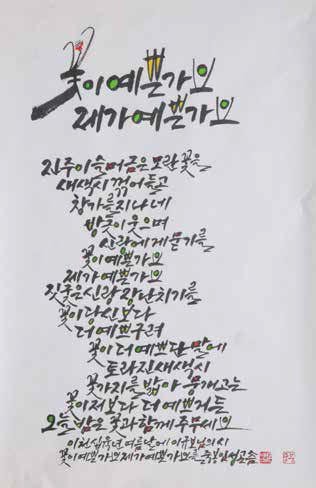 꽃이 예쁜가요
제가 예쁜가요
진주이슬 머금은 모란꽃을
새색시 꺾어들고
창가를 지나네
방긋이 웃으며
신랑에게 묻기를
꽃이 예쁜가요
제가 예쁜가요
짓궂은 신랑 장난치기를
꽃이 당신보다
더 예쁘구려
꽃이 더 예쁘단 말에
토라진 새색시
꽃가지를 밟아 뭉개고는
꽃이 저보다 더 예쁘거든
오늘밤은 꽃과 함께 주무세요
이천십육년 여름날에 이규보님의 시
꽃이 예쁜가요 제가 예쁜가요를